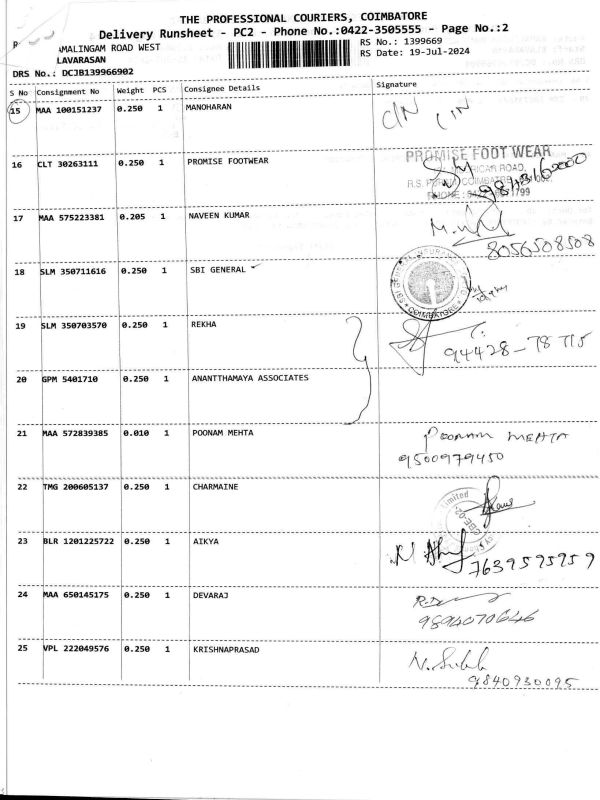 THE PROFESSIONAL COURIERS, COIMBATORE
Delivery Runsheet - PC2 - Phone No.:0422-3505555 - Page No.:2
AMALINGAM ROAD WEST
LAVARASAN
RS No.: 1399669
RS Date: 19-Jul-2024
DRS No.: DCJB139966902
S No Consignment No Weight PCS Consignee Details Signature
15 MAA 100151237 0.250 1 MANOHARAN
16 CLT 30263111 0.250 1 PROMISE FOOTWEAR
PROMISE FOOT WEAR
17 MAA 575223381 0.205 1 NAVEEN KUMAR
8056508508
18 SLM 350711616 0.250 1 SBI GENERAL
COIMBATORE
19 SLM 350703570 0.250 1 REKHA
94428-78715
20 GPM 5401710 0.250 1 ANANTTHAMAYA ASSOCIATES
21 MAA 572839385 0.010 1 POONAM MEHTA
POONAM MEHTA
9500979450
22 TMG 200605137 0.250 1 CHARMAINE
Limited
23 BLR 1201225722 0.250 1 AIKYA
7639595959
24 MAA 650145175 0.250 1 DEVARAJ
9894070646
25 VPL 222049576 0.250 1 KRISHNAPRASAD
9840930095